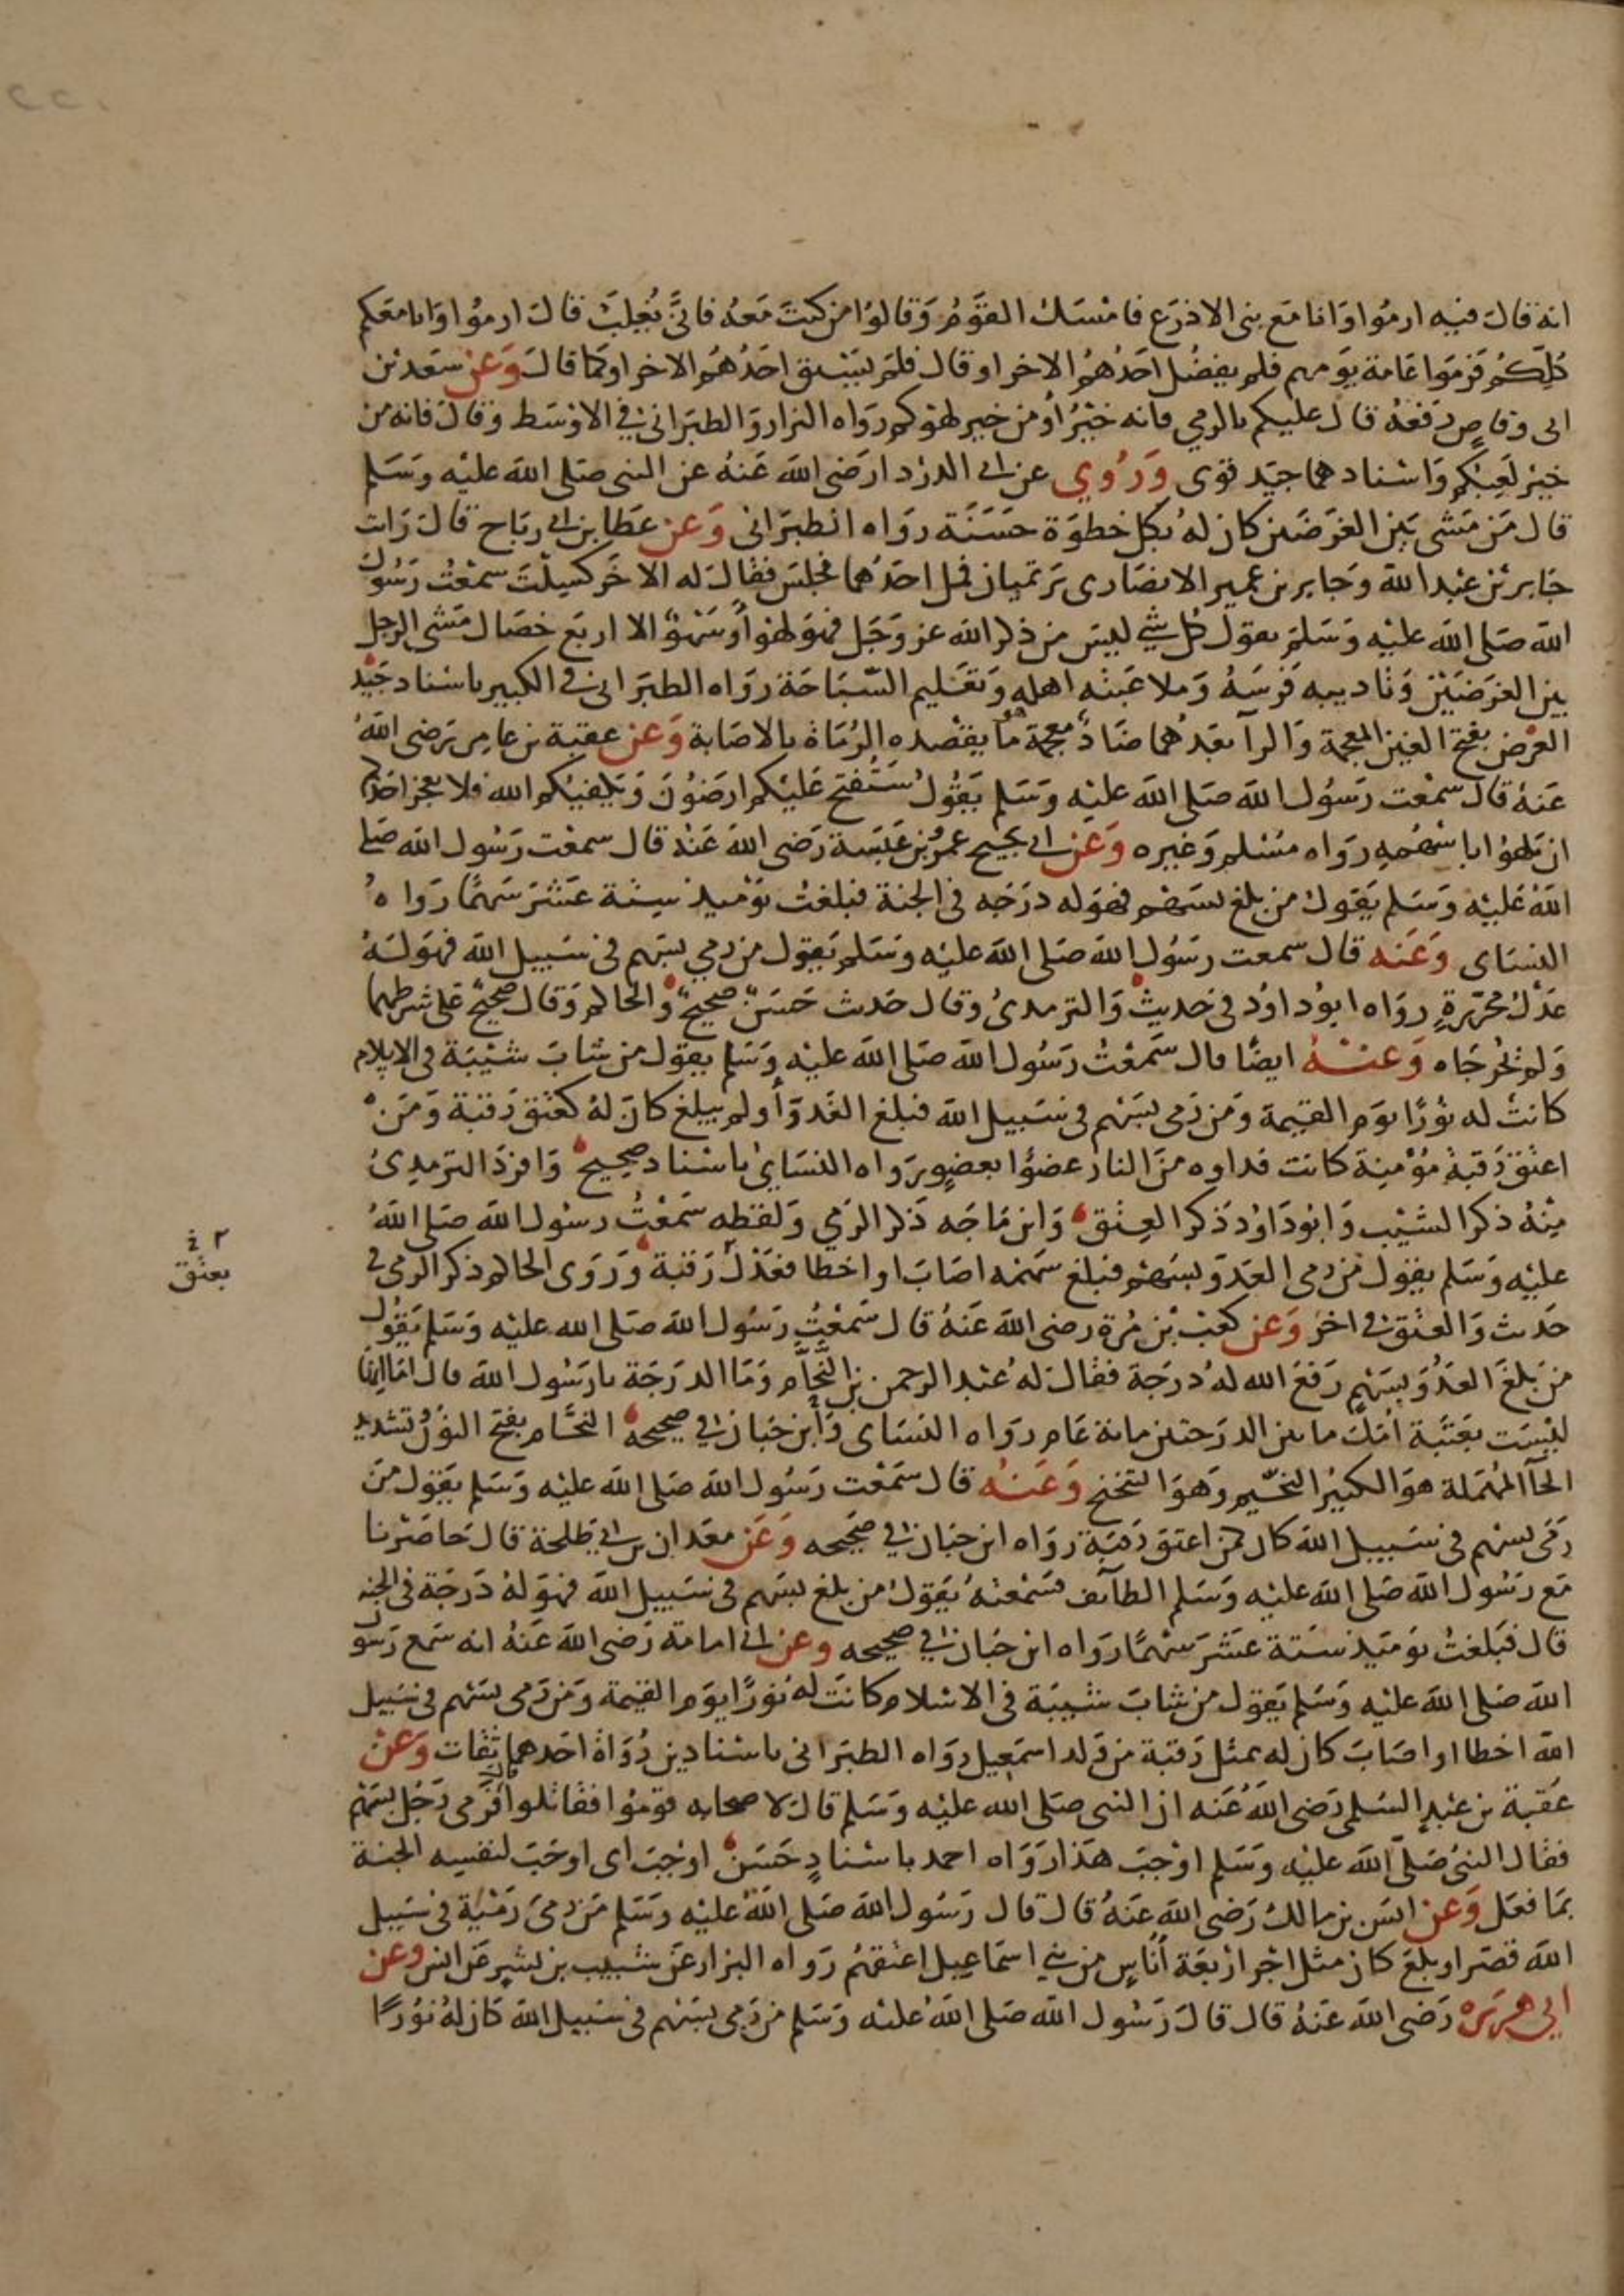 انه قال فيه ارموا وانا مع بنى الاذرع فامسك القوم وقالوا من كنت معه فانى يُغلب قال ارموا وانا معكم
كلكم فرموا عامة يومهم فلم يفضل احدهم الاخر او قال فلم يسبق احدهم الاخر او كما قال وعن سعد بن
ابى وقاص رفعه قال عليكم بالرمي فانه خيرٌ أو من خير لهوكم رواه البزار والطبرانى في الاوسط وقال فانه من
خير لعبكم واسنادهما جيد قوى ورُوي عن ابى الدردا رضى الله عنه عن النبى صلى الله عليه وسلم
قال من مشى بين الغرضين كان له بكل خطوة حسنة رواه الطبرانى وعن عطا بن ابى رباح قال رات
جابر بن عبد الله وجابر بن عمير الانصارى يرتميان فمل احدهما فجلس فقال له الاخر كسلت سمعت رسول
الله صلى الله عليه وسلم يقول كل شي ليس من ذكر الله عز وجل فهو لهو أو سهو الا اربع خصال مشى الرجل
بين الغرضين وتاديبه فرسه وملاعبته اهله وتعليم السباحة رواه الطبرانى في الكبير باسناد جيد
الغرض بفتح الغين المعجمة والرآ بعدهما ضاد معجمة هو ما يقصده الرماة بالاصابة وعن عقبة بن عامر رضى الله
عنه قال سمعت رسول الله صلى الله عليه وسلم يقول ستفتح عليكم ارضون ويكفيكم الله فلا يعجز احدكم
ان يلهوا باسهمه رواه مسلم وغيره وعن ابى نجيح عمرو بن عبسة رضى الله عنه قال سمعت رسول الله صلى
الله عليه وسلم يقول من بلغ بسهم فهو له درجه فى الجنة فبلغت يوميذ ستة عشر سهما رواه
النساى وعنه قال سمعت رسول الله صلى الله عليه وسلم يقول من رمي بسهم فى سبيل الله فهو له
عدل محررة رواه ابو داود فى حديث والترمدى وقال حدث حسن صحيح والحاكم وقال صحيح على شرطهما
ولم يخرجاه وعنه ايضا قال سمعت رسول الله صلى الله عليه وسلم يقول من شاب شيبة فى الاسلام
كانت له نورا يوم القيمة ومن رمى بسهم فى سبيل الله فبلغ العدو أو لم يبلغ كان له كعتق رقبة ومن
اعتق رقبة مؤمنة كانت فداوه من النار عضوا بعضو رواه النساى باسناد صحيح وافرد الترمدى
منه ذكر الشيب وابو داود ذكر العتق وابن ماجه ذكر الرمي ولفظه سمعت رسول الله صلى الله
عليه وسلم يقول من رمى العدو بسهم فبلغ سهمه اصاب او اخطا فعدل رقبة وروى الحاكم ذكر الرمى فى
حدث والعتق فى اخر وعن كعب بن مرة رضى الله عنه قال سمعت رسول الله صلى الله عليه وسلم يقول
من بلغ العدو بسهم رفع الله له درجة فقال له عبد الرحمن بن النحام وما الدرجة يا رسول الله قال اما انها
ليست بعتبة امك ما بين الدرجتين ماىة عام رواه النساى وأبن حبان في صحيحه النحام بفتح النون وتشديد
الحآ المهملة هو الكثير النحيم وهو التنحنح وعنه قال سمعت رسول الله صلى الله عليه وسلم يقول من
رمى بسهم فى سبيل الله كان كمن اعتق رقبة رواه ابن حبان في صحيحه وعن معدان بن ابي طلحة قال حاصرنا
مع رسول الله صلى الله عليه وسلم الطآىف فسمعته يقول من بلغ بسهم فى سبيل الله فهو له درجة فى الجنه
قال فبلغت يوميذ ستة عشر سهما رواه ابن حبان في صحيحه وعن ابى امامة رضى الله عنه انه سمع رسو
الله صلى الله عليه وسلم يقول من شاب شيبة فى الاسلام كانت له نورا يوم القيمة ومن رمى بسهم فى سبيل
الله اخطا او اصاب كان له بمثل رقبة من ولد اسمعيل رواه الطبرانى باسنادين رواة احدهما ثقات وعن
عقبة بن عبد السلمى رضى الله عنه ان النبى صلى الله عليه وسلم قال لاصحابه قوموا فقاتلوا قال فرمى رجل بسهم
فقال النبى صلى الله عليه وسلم اوجب هذا رواه احمد باسنادٍ حسن اوجب اى اوجب لنفسه الجنة
بما فعل وعن انس بن مالك رضى الله عنه قال قال رسول الله صلى الله عليه وسلم من رمى رمية فى سبيل
الله قصر او بلغ كان مثل اجر اربعة أناس من بني اسماعيل اعتقهم رواه البزار عن شبيب بن بشير عن انس وعن
ابي هريره رضى الله عنه قال قال رسول الله صلى الله عليه وسلم من رمى بسهم فى سبيل الله كان له نورا
بعتق